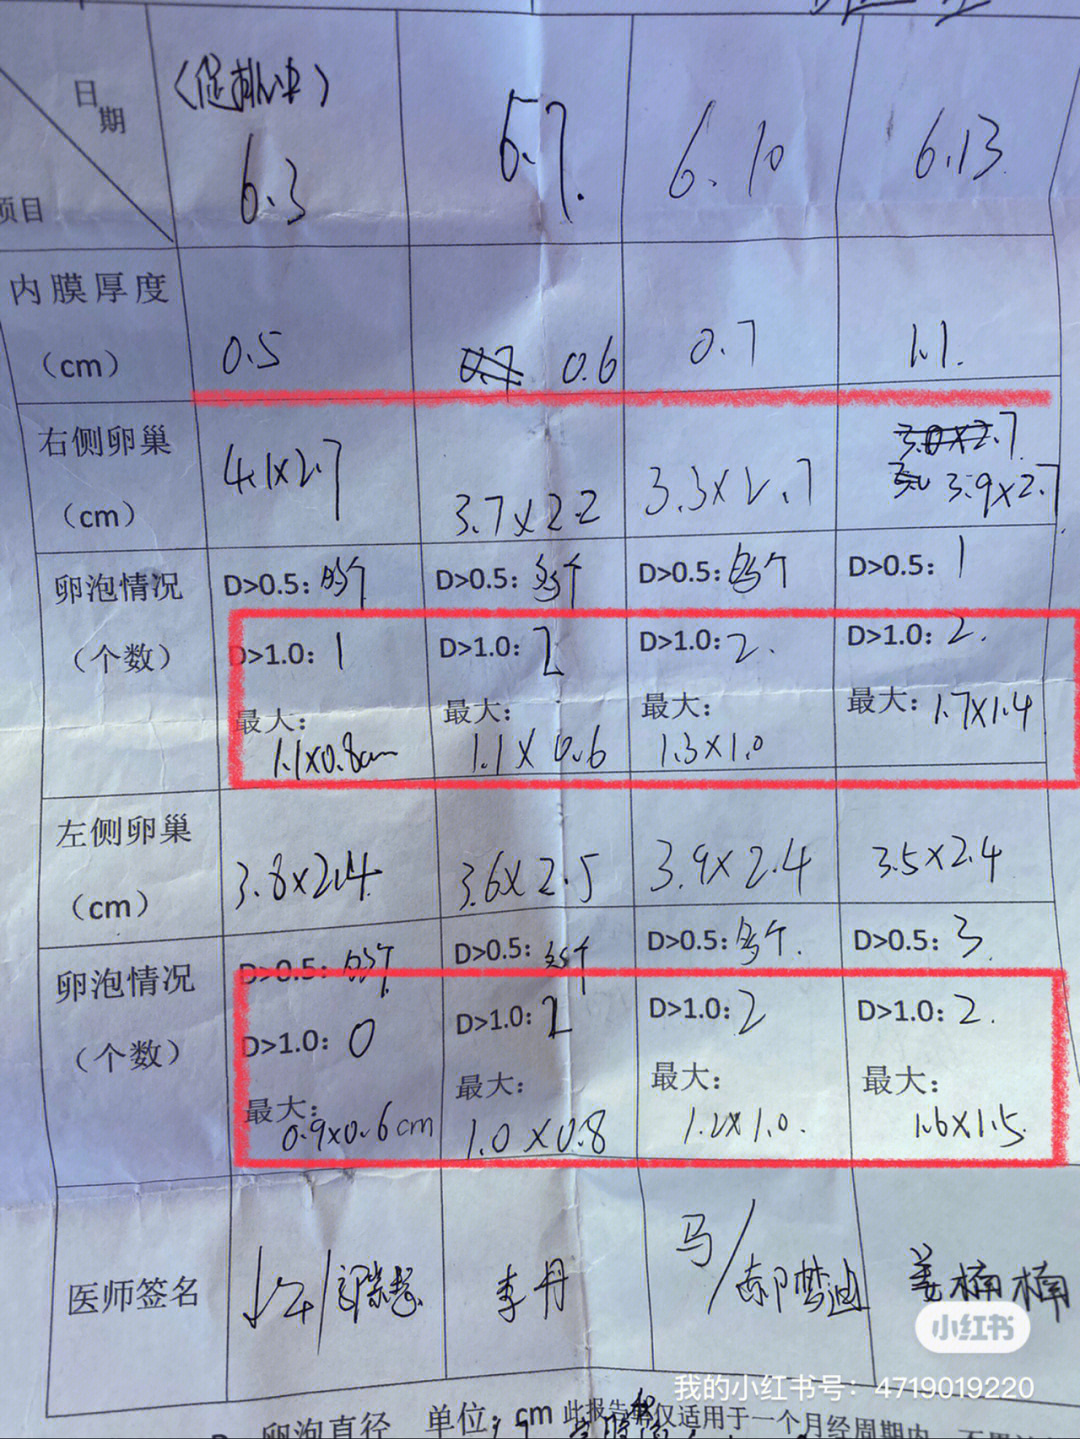 日期
项目
(促排中)
6.3
6.7.
6.10
6.13
内膜厚度
（cm）
0.5
0.6
0.7
1.1.
右侧卵巢
（cm）
4.1x2.7
3.7x2.2
3.3x2.7
3.0x2.7
3.9x2.7
卵泡情况
（个数）
D>0.5：多个
D>1.0：1
最大：
1.1x0.8cm
D>0.5：多个
D>1.0：2
最大：
1.1x0.6
D>0.5：多个
D>1.0：2.
最大：
1.3x1.0
D>0.5：1
D>1.0：2.
最大：1.7x1.4
左侧卵巢
（cm）
3.8x2.4
3.6x2.5
3.9x2.4
3.5x2.4
卵泡情况
（个数）
D>0.5：多个
D>1.0：0
最大：
0.9x0.6cm
D>0.5：多个
D>1.0：2
最大：
1.0x0.8
D>0.5：多个.
D>1.0：2
最大：
1.2x1.0.
D>0.5：3
D>1.0：2.
最大：
1.6x1.5
医师签名
李丹
马/郝梦迪
姜楠楠
小红书
我的小红书号：4719019220
卵泡直径 单位：cm 此报告仅适用于一个月经周期内